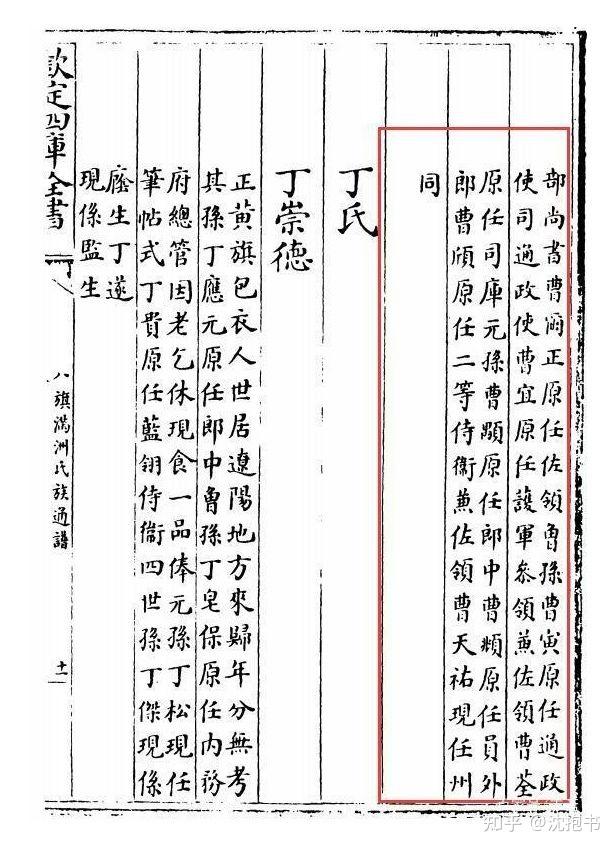 部尚書曹爾正原任佐領曾孫曹寅原任通政
使司通政使曹宜原任護軍參領兼佐領曹荃
原任司庫元孫曹顒原任郎中曹頫原任員外
郎曹頎原任二等侍衛兼佐領曹天祐現任州
同
丁氏
丁崇德
正黃旗包衣人世居遼陽地方來歸年分無考
其孫丁應元原任郎中曾孫丁皂保原任内務
府總管因老乞休現食一品俸元孫丁松現任
筆帖式丁貴原任藍翎侍衛四世孫丁傑現係
廕生丁遂
現係監生
欽定四庫全書
八旗滿洲氏族通譜
十一
知乎 @沈抱书